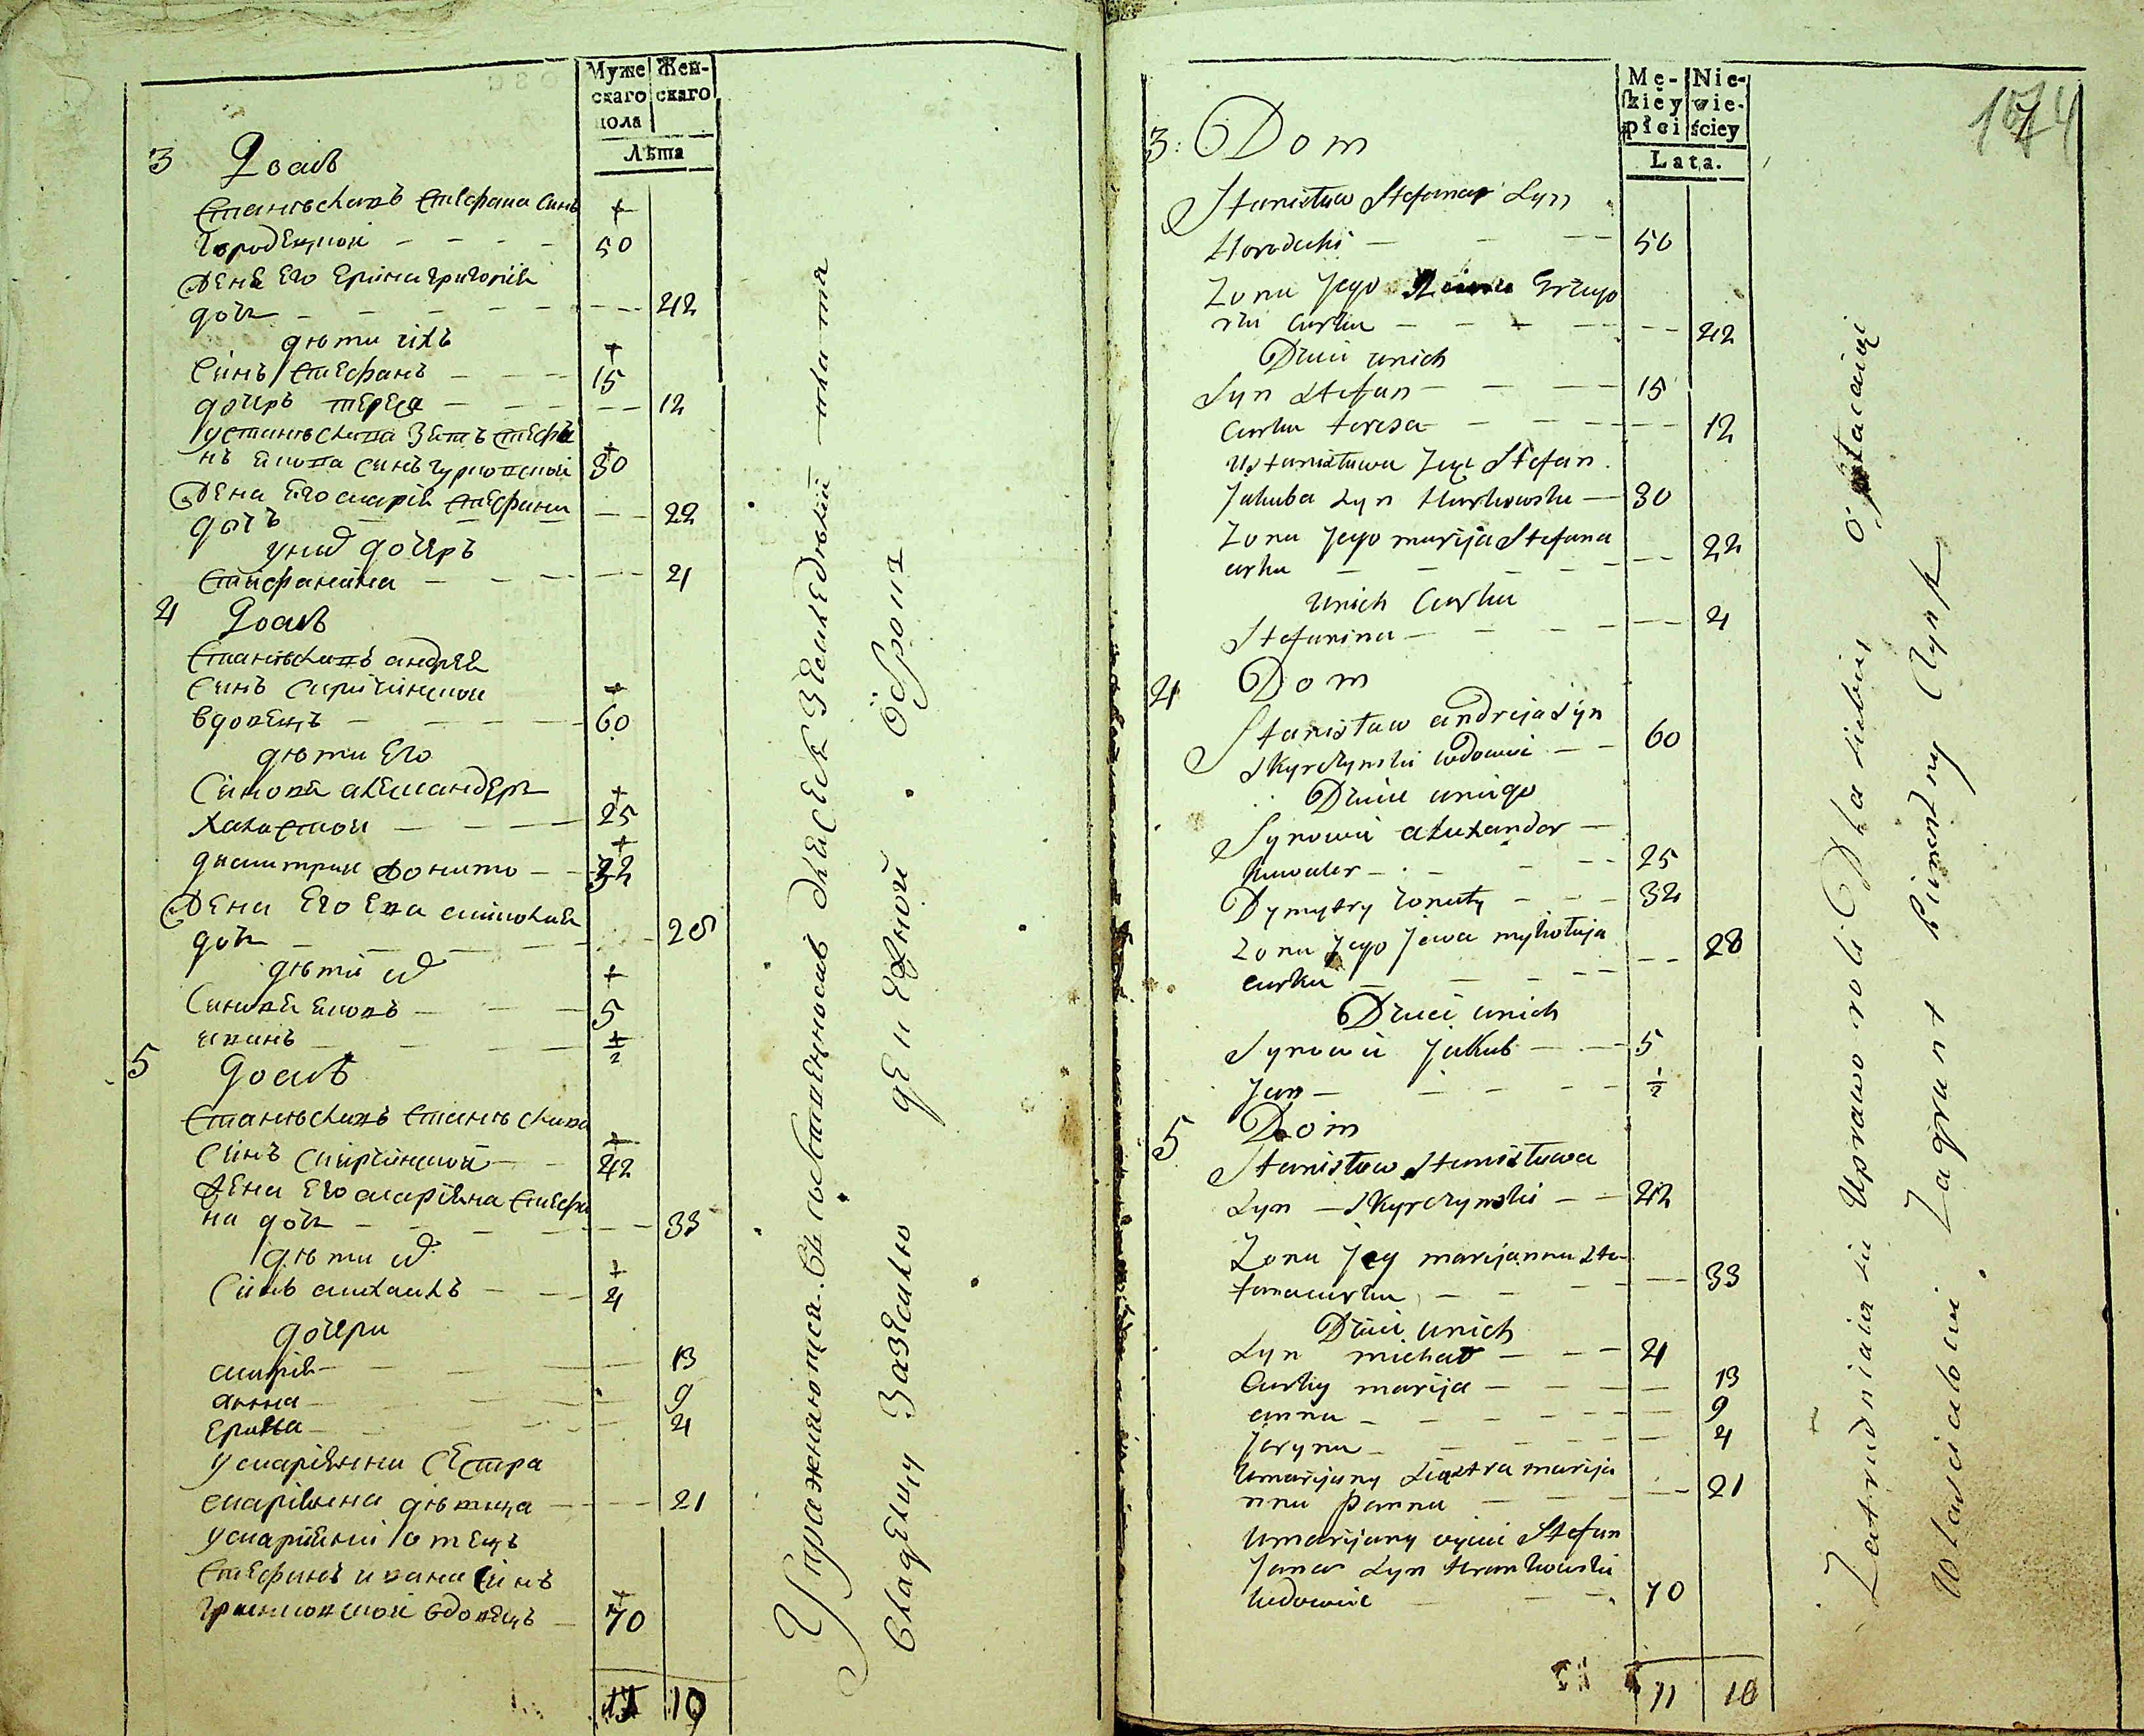 Муже
скаго
пола
Жен-
скаго
Лѣта
3 Домъ
Станѣславъ Стефана Синъ
Городецкой 50
Жена Его Ерина Григорія
дочь 42
дѣти ихъ
Синъ Стефанъ 15
дочеръ тереса 12
У станѣслава Зять Стефа
нъ якова синъ 30
Жена Его марія Стефана
дочъ 22
у них дочеръ
Стефанина 4
4 Домъ
Станѣславъ андрея
Синъ Скирчинской
вдовецъ 60
дѣти Его
Синовя александеръ
халастой 25
дмитрий Жонато 32
Жена Его Ева миколая
дочь 28
дѣти их
Синовя яковъ 5
иванъ 1/2
5 домъ
Станѣславъ Станѣслава
Синъ Скирчинской 42
Жена Его марияна Стефа
на дочь 33
дѣти их
Синъ михаилъ 4
дочери
марія 13
анна 9
Ерина 4
У марияни Сестра
марияна дѣвица 21
У марияни отецъ
Стефанъ ивана синъ
вдовецъ 70
11 10
Упражняются въ земледѣлий плата
владелцу
Mę-
skiey
płci
Nie-
wie-
ściey
Lata.
1674
3: Dom
Stanisław Stefana Syn
Horodecki 50
Zona Jego Grzego
rza curka 42
Dzieci unich
Syn Stefan 15
Curka teresa 12
U Stanisława Zięc Stefan
Jakuba Syn Harkowski 30
Zona Jego marija Stefana
curka 22
unich Curka
Stefanina 4
4 Dom
Stanisław andreja Syn
Skyrczynski wdowiec 60
Dzieci uniego
Synowie alexander
kawaler 25
Dymytry zonaty 32
Zona Jego Jewa mykołaja
curka 28
Dzieci unich
Synowie Jakub 5
Jan 1/2
5 Dom
Stanisław Stanisława
Syn Skyrczynski 42
Zona Jeg marijanna Ste
fana curka 33
Dzieci unich
Syn michał 4
Curky marija 13
anna 9
Jaryna 4
Umarijany Siostra marija
nna panna 21
Umarijany ojciec Stefan
Jana Syn Hramkowski
wdowiec 70
11 10
Zatrudniaia się Uprawo roli Dla siebie
Właścicielowi Zagrunt Czynsz